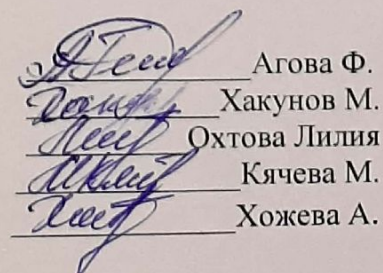 Агова Ф.
Хакунов М.
Охтова Лилия
Кячева М.
Хожева А.